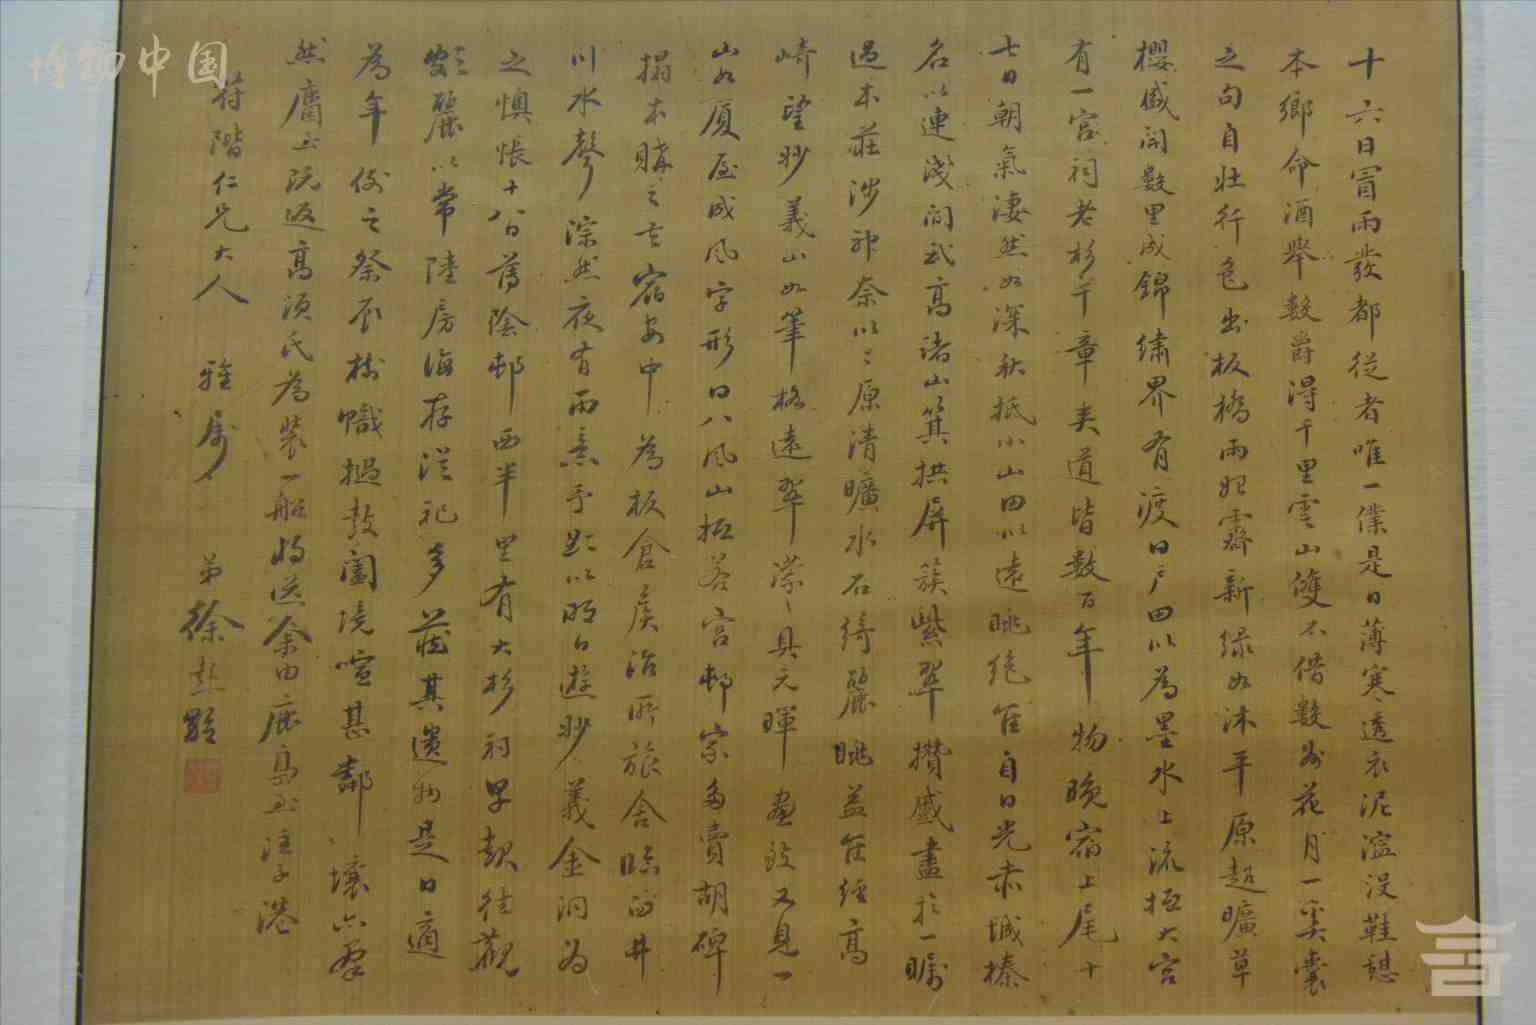 十六日冒雨發都從者唯一僕是日薄寒透衣泥濘沒鞋憩
本鄉命酒舉數爵得千里雲山雙不借數聲花月一奚囊
之句自壯行色出板橋雨始霽新綠如沐平原超曠草
櫻盛開數里成錦繡界有渡曰戶田以為墨水上流抵大宮
有一宮祠老杉千章夾道皆數百年物晚宿上尾十
七日朝氣淒然如深秋抵小山田以遠眺絕佳自日光赤城榛
名以連淺間武高諸山箕拱屏簇紫翠攢盛盡於一矚
過本莊涉神奈川川原清曠水石綺麗眺益佳經高
崎望妙義山如筆格遠翠濛濛具元暉畫致又見一
山如廈屋成風字形曰八風山抵落宮邨家多賣胡碑
搨本購之去宿安中為板倉侯治所旅舍臨田井
川水聲淙然夜有雨意予期以明日遊妙義金洞為
之懊悵十八日舊陰邨西半里有大杉祠早起往觀
麗以常陸房海存從祀多藏其遺物是日適
為年例之祭辰樹幟撾鼓闔境喧甚鄰壤亦羣
然屬至既返高須氏為裝一船將送余由鹿島至銚子港
荷階仁兄大人 雅屬 弟徐熙
博物中国